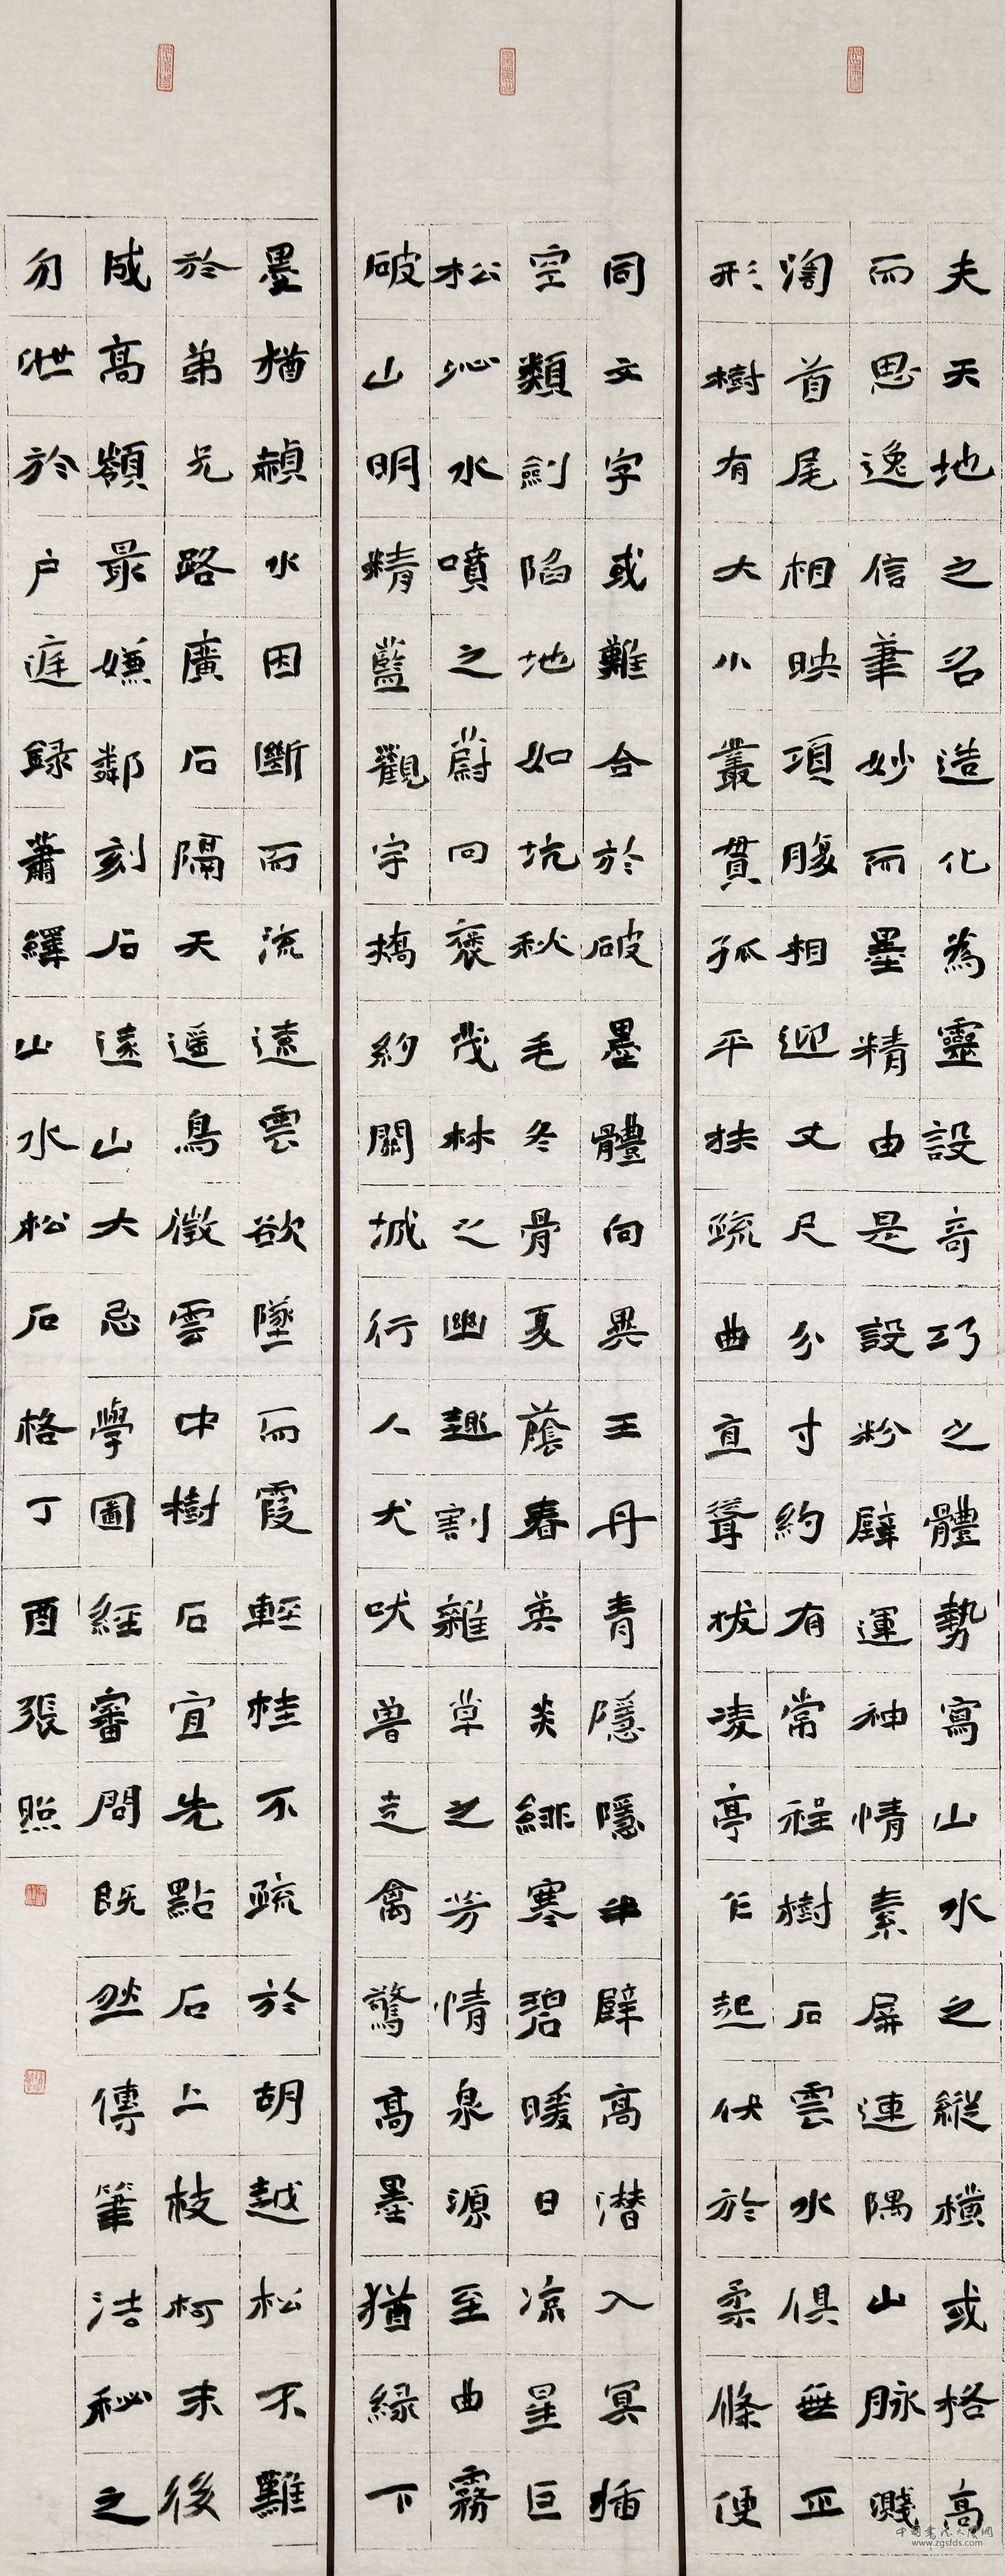 夫天地之名造化為靈設奇巧之體勢寫山水之縱橫或格高
而思逸信筆妙而墨精由是設粉壁運神情素屏連隅山脉濺
淘首尾相映項腹相迎丈尺分寸約有常程樹石雲水俱無正
形樹有大小叢貫孤平扶疏曲直聳拔凌亭乍起伏於柔條便
同文字或難合於破墨體向異王丹青隱隱半壁高潜入冥插
空類劍陷地如坑秋毛冬骨夏蔭春英炎緋寒碧暖日凉星巨
松沁水噴之蔚向褒茂林之幽趣割雜草之芳情泉源至曲霧
破山明精藍觀宇橋約關城行人犬吠兽走禽驚高墨猶緑下
墨猶赬水因斷而流遠雲欲墜而霞輕桂不疏於胡越松不難
於弟兄路廣石隔天遥鳥徵雲中樹石宜先點石上枝柯末後
成高嶺最嫌鄰刻石遠山大忌學圖經審問既然傳筆法秘之
勿泄於户庭録蕭繹山水松石格丁酉張照
中国书法大展网
www.zgsfds.com